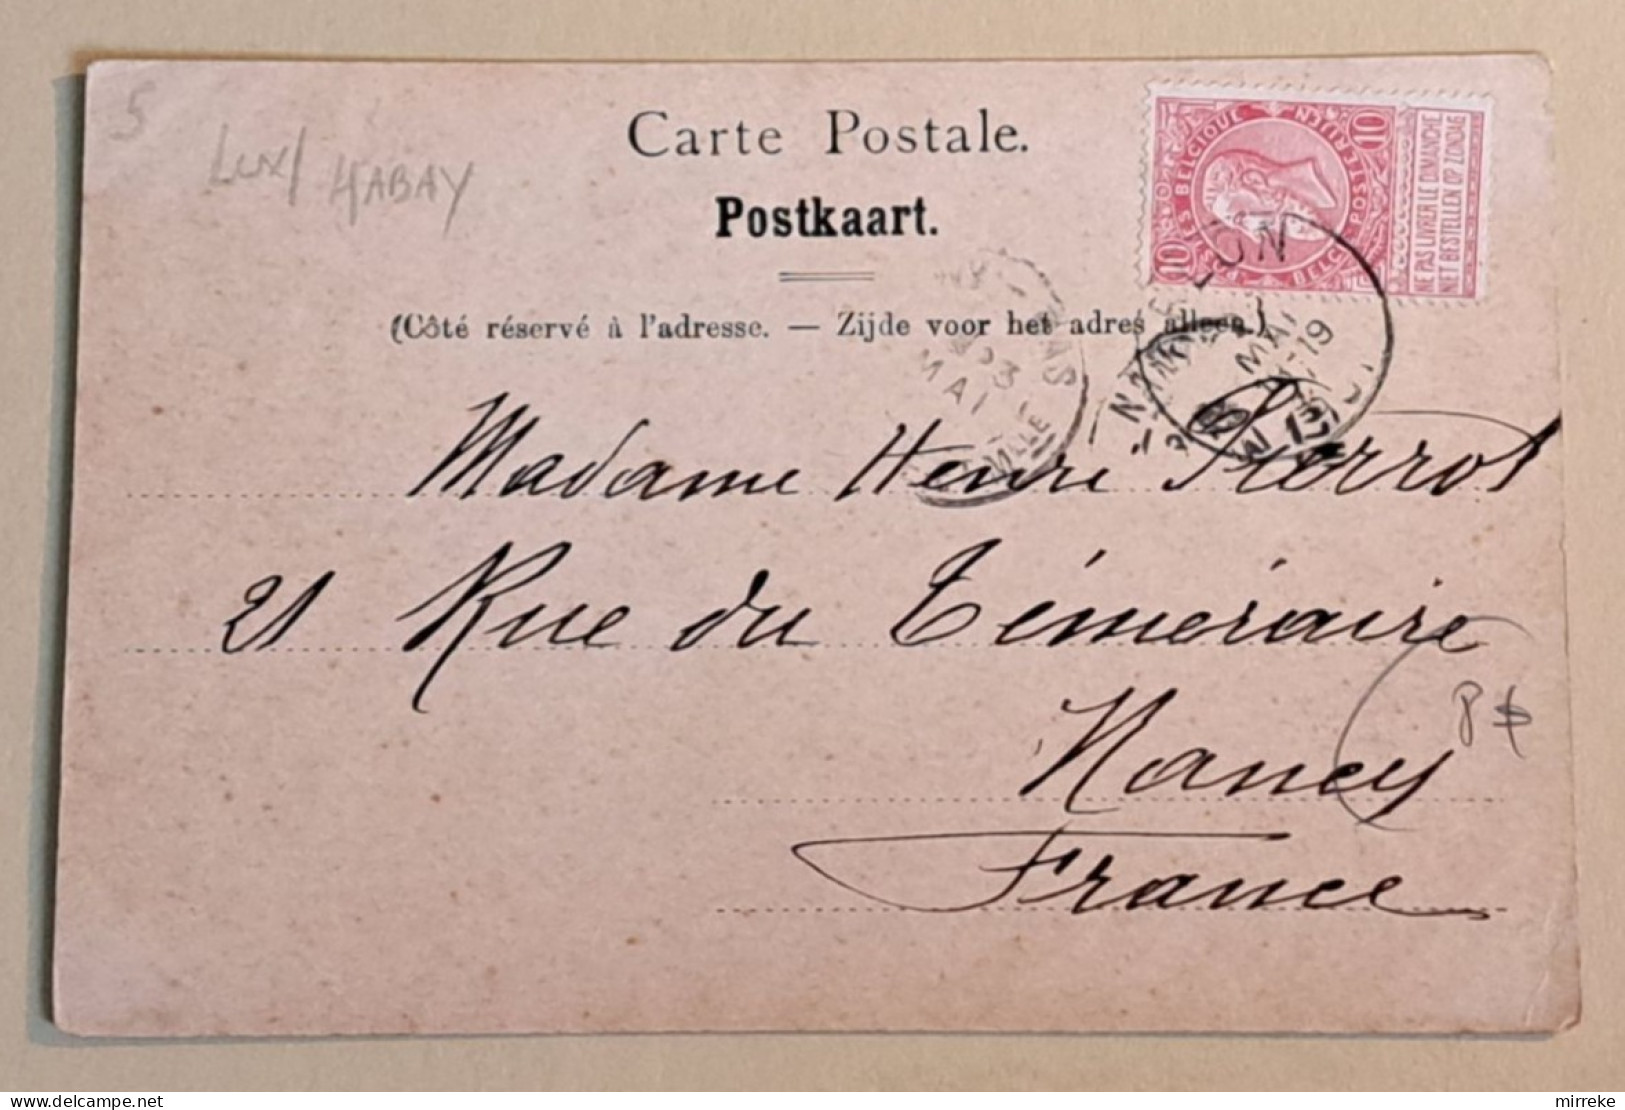 5
Lux/ HABAY
Carte Postale.
Postkaart.
(Côté réservé à l'adresse. — Zijde voor het adres alleen.)
10 POSTERIJEN 10
POSTES BELGIQUE
BELGIE
NE PAS LIVRER LE DIMANCHE
NIET BESTELLEN OP ZONDAG
MAI
MAI
Madame Henri Pierrot
21 Rue du Téméraire
Nancy
France
mirreke